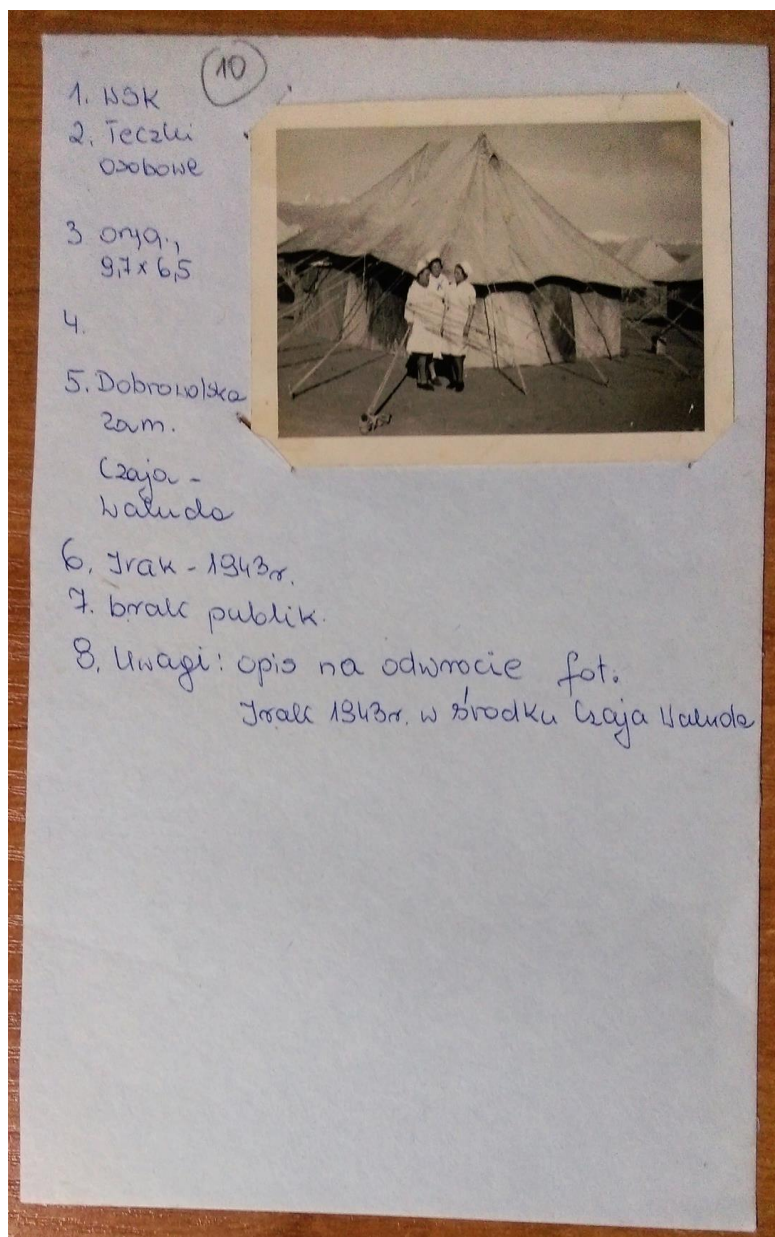 10
1. WSK
2. Teczki
osobowe
3 oryg.,
9,7 x 6,5
4.
5. Dobrowolska
zam.
Czaja -
Waluda
6. Irak - 1943r.
7. brak publik.
8. Uwagi: opis na odwrocie fot.
Irak 1943r. w środku Czaja Waluda